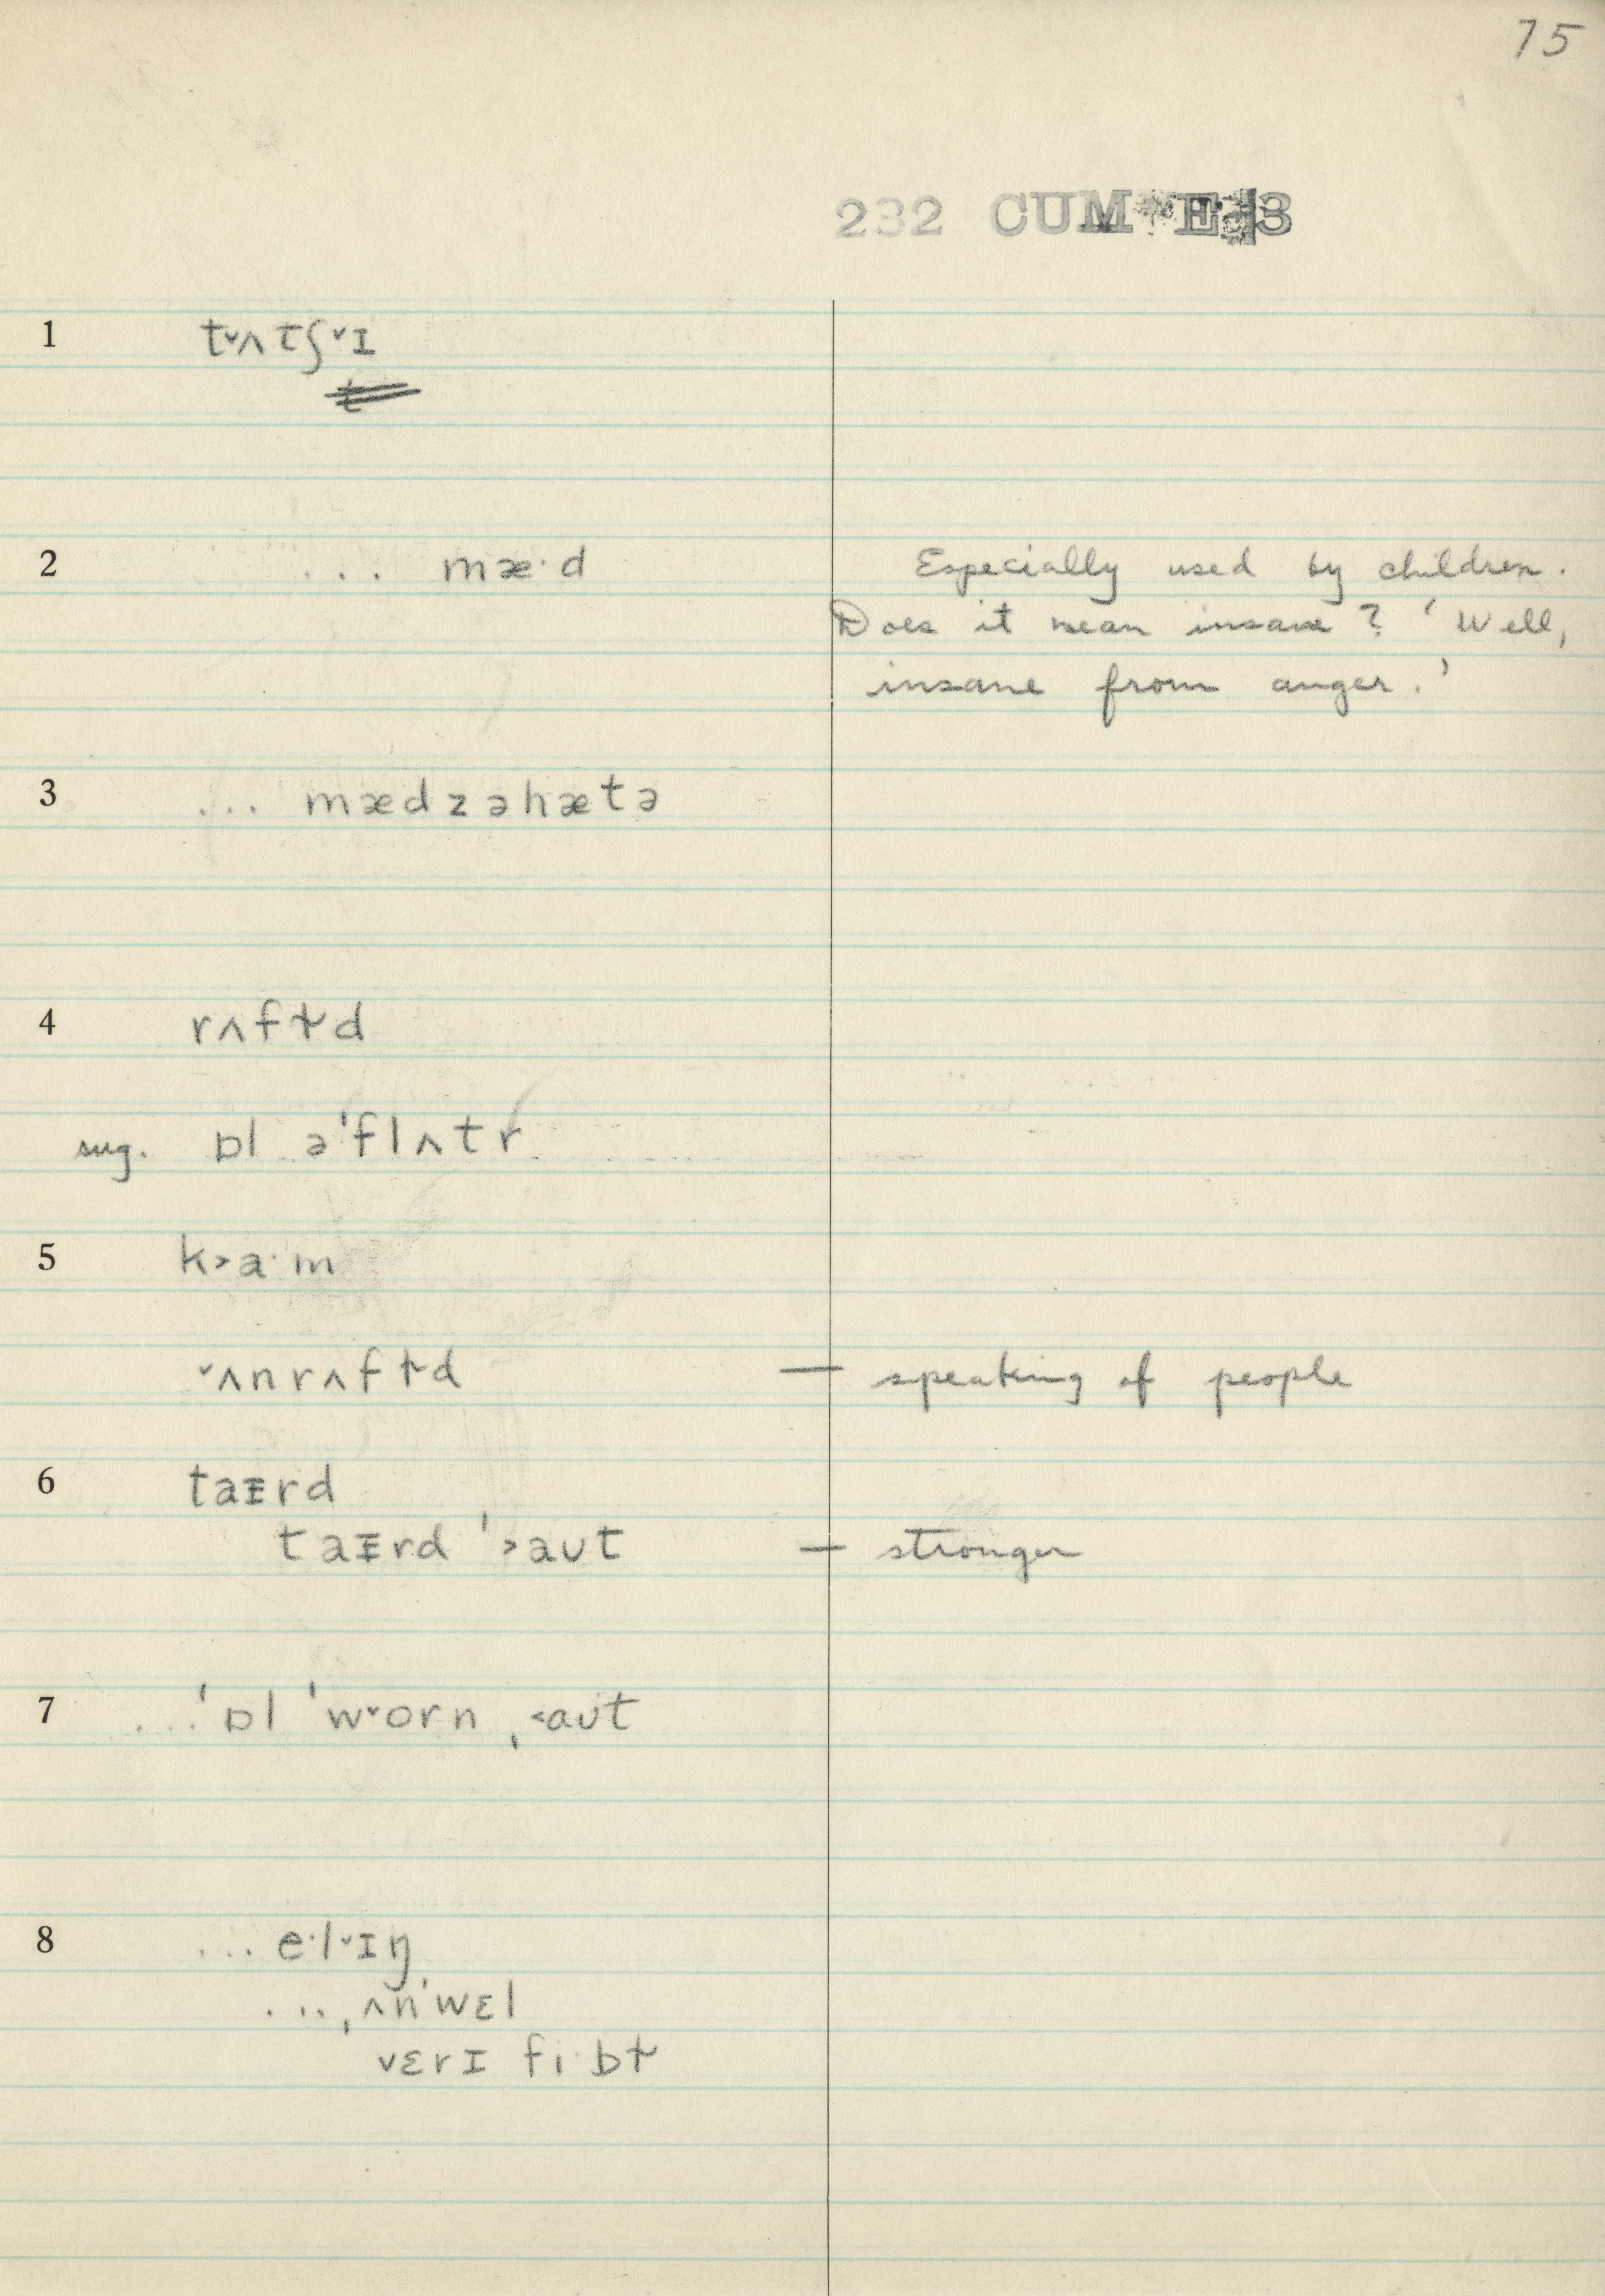 75
232 CUM E 3
1 t˅ʌtʃ˅ɪ
t
2 ... mæ·d Especially used by children.
Does it mean insane? ‘Well,
insane from anger.’
3 ... mædzəhætə
4 rʌfɫd
sug. ɒl ə'flʌtr
5 k˃a·m
˅ʌnrʌfɫd — speaking of people
6 taɪrd
taɪrd '˃aʊt — stronger
7 ...'ɒl 'w˅orn ˌ˂aʊt
8 ... e·l˅ɪŋ
...ˌʌn'wɛl
vɛrɪ fi·bɫ